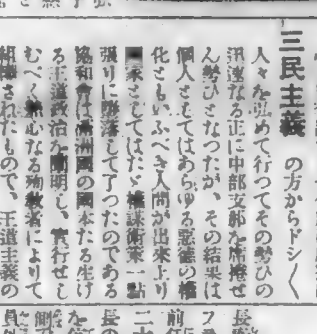 三民主義 の方からドシ〱
人々を弘めて行つてその勢ひの
迅速なる正に中部支那を席捲せ
ん勢ひとなつたが、その結果は
個人としてはあらゆる惡德の權
化ともいふべき人間が出來上り
家としてはたゞ權謀術策一點
張りに墮落して了つたのである
協和會は滿洲國の國本たる生け
る王道政治を闡明し、實行せし
むべく熱心なる殉敎者によりて
組織されたもので、王道主義の